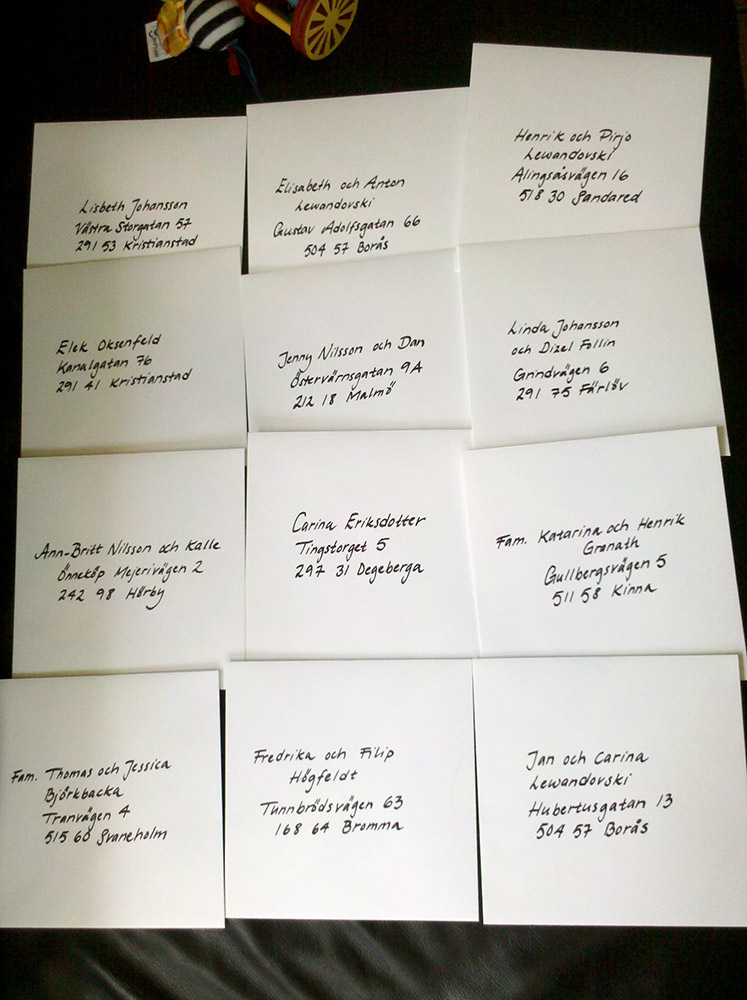 Lisbeth Johansson
Västra Storgatan 57
291 53 Kristianstad
Elisabeth och Anton
Lewandovski
Gustav Adolfsgatan 66
504 57 Borås
Henrik och Pirjo
Lewandovski
Alingsåsvägen 16
518 30 Sandared
Elek Oksenfeld
Kanalgatan 76
291 41 Kristianstad
Jenny Nilsson och Dan
Östervärnsgatan 9A
212 18 Malmö
Linda Johansson
och Dizel Follin
Grindvägen 6
291 75 Färlöv
Ann-Britt Nilsson och Kalle
Önneköp Mejerivägen 2
242 98 Hörby
Carina Eriksdotter
Tingstorget 5
297 31 Degeberga
Fam. Katarina och Henrik
Granath
Gullbergsvägen 5
511 58 Kinna
Fam. Thomas och Jessica
Björkbacka
Tranvägen 4
515 60 Svaneholm
Fredrika och Filip
Högfeldt
Tunnbrödsvägen 63
168 64 Bromma
Jan och Carina
Lewandovski
Hubertusgatan 13
504 57 Borås